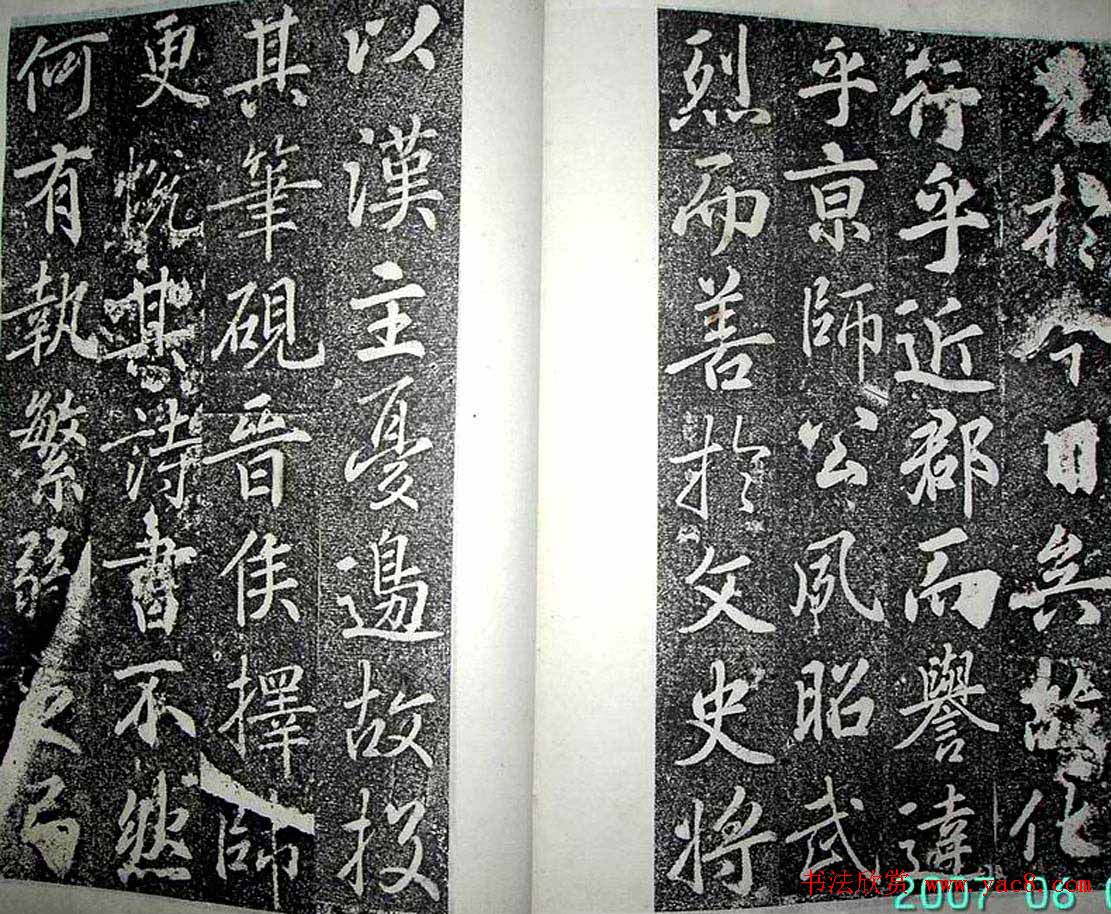 見於今日矣故化
行乎近郡而譽達
乎京師公夙昭武
烈而善於文史將
以漢主憂邊故投
其筆硯晉侯擇帥
更悅其詩書不然
何有執繁弱之弓
书法欣赏 www.yac8.com
2007 06 0